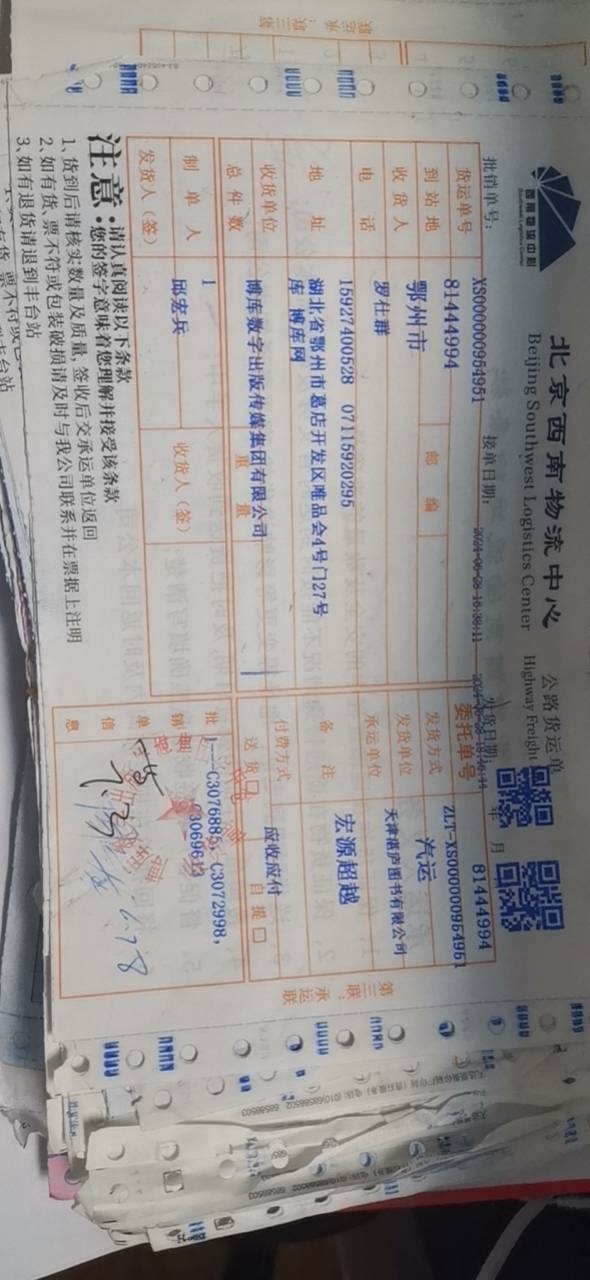 西南物流中心
Southwest Logistics Center
北京西南物流中心
Beijing Southwest Logistics Center
公路货运单
Highway Freight
批销单号: XS000000954951
接单日期: 2024-06-28 16:38:11
发货日期: 年 月
货运单号 81444994
委托单号 81444994
ZLT-XS000000954951
到站地 鄂州市 邮编
发货方式 汽运
收货人 罗仕群
发货单位 天津湛庐图书有限公司
电话 15927400528 07115920295
承运单位
地址 湖北省鄂州市葛店开发区唯品会4号门27号
库 博库网
备注 宏源超越
收货单位 博库数字出版传媒集团有限公司
付费方式 应收应付
总件数 1 重量
送货□ 自提□
制单人 邱宏兵
收货人(签)
发货人(签)
批销单信息
1---C3076885, C3072998,
C3069613
6.28
第三联:承运联
注意:
请认真阅读以下条款
您的签字意味着您理解并接受该条款
1、货到后请核实数量及质量,签收后交承运单位返回
2、如有货、票不符或包装破损请及时与我公司联系并在票据上注明
3、如有退货请退到丰台站